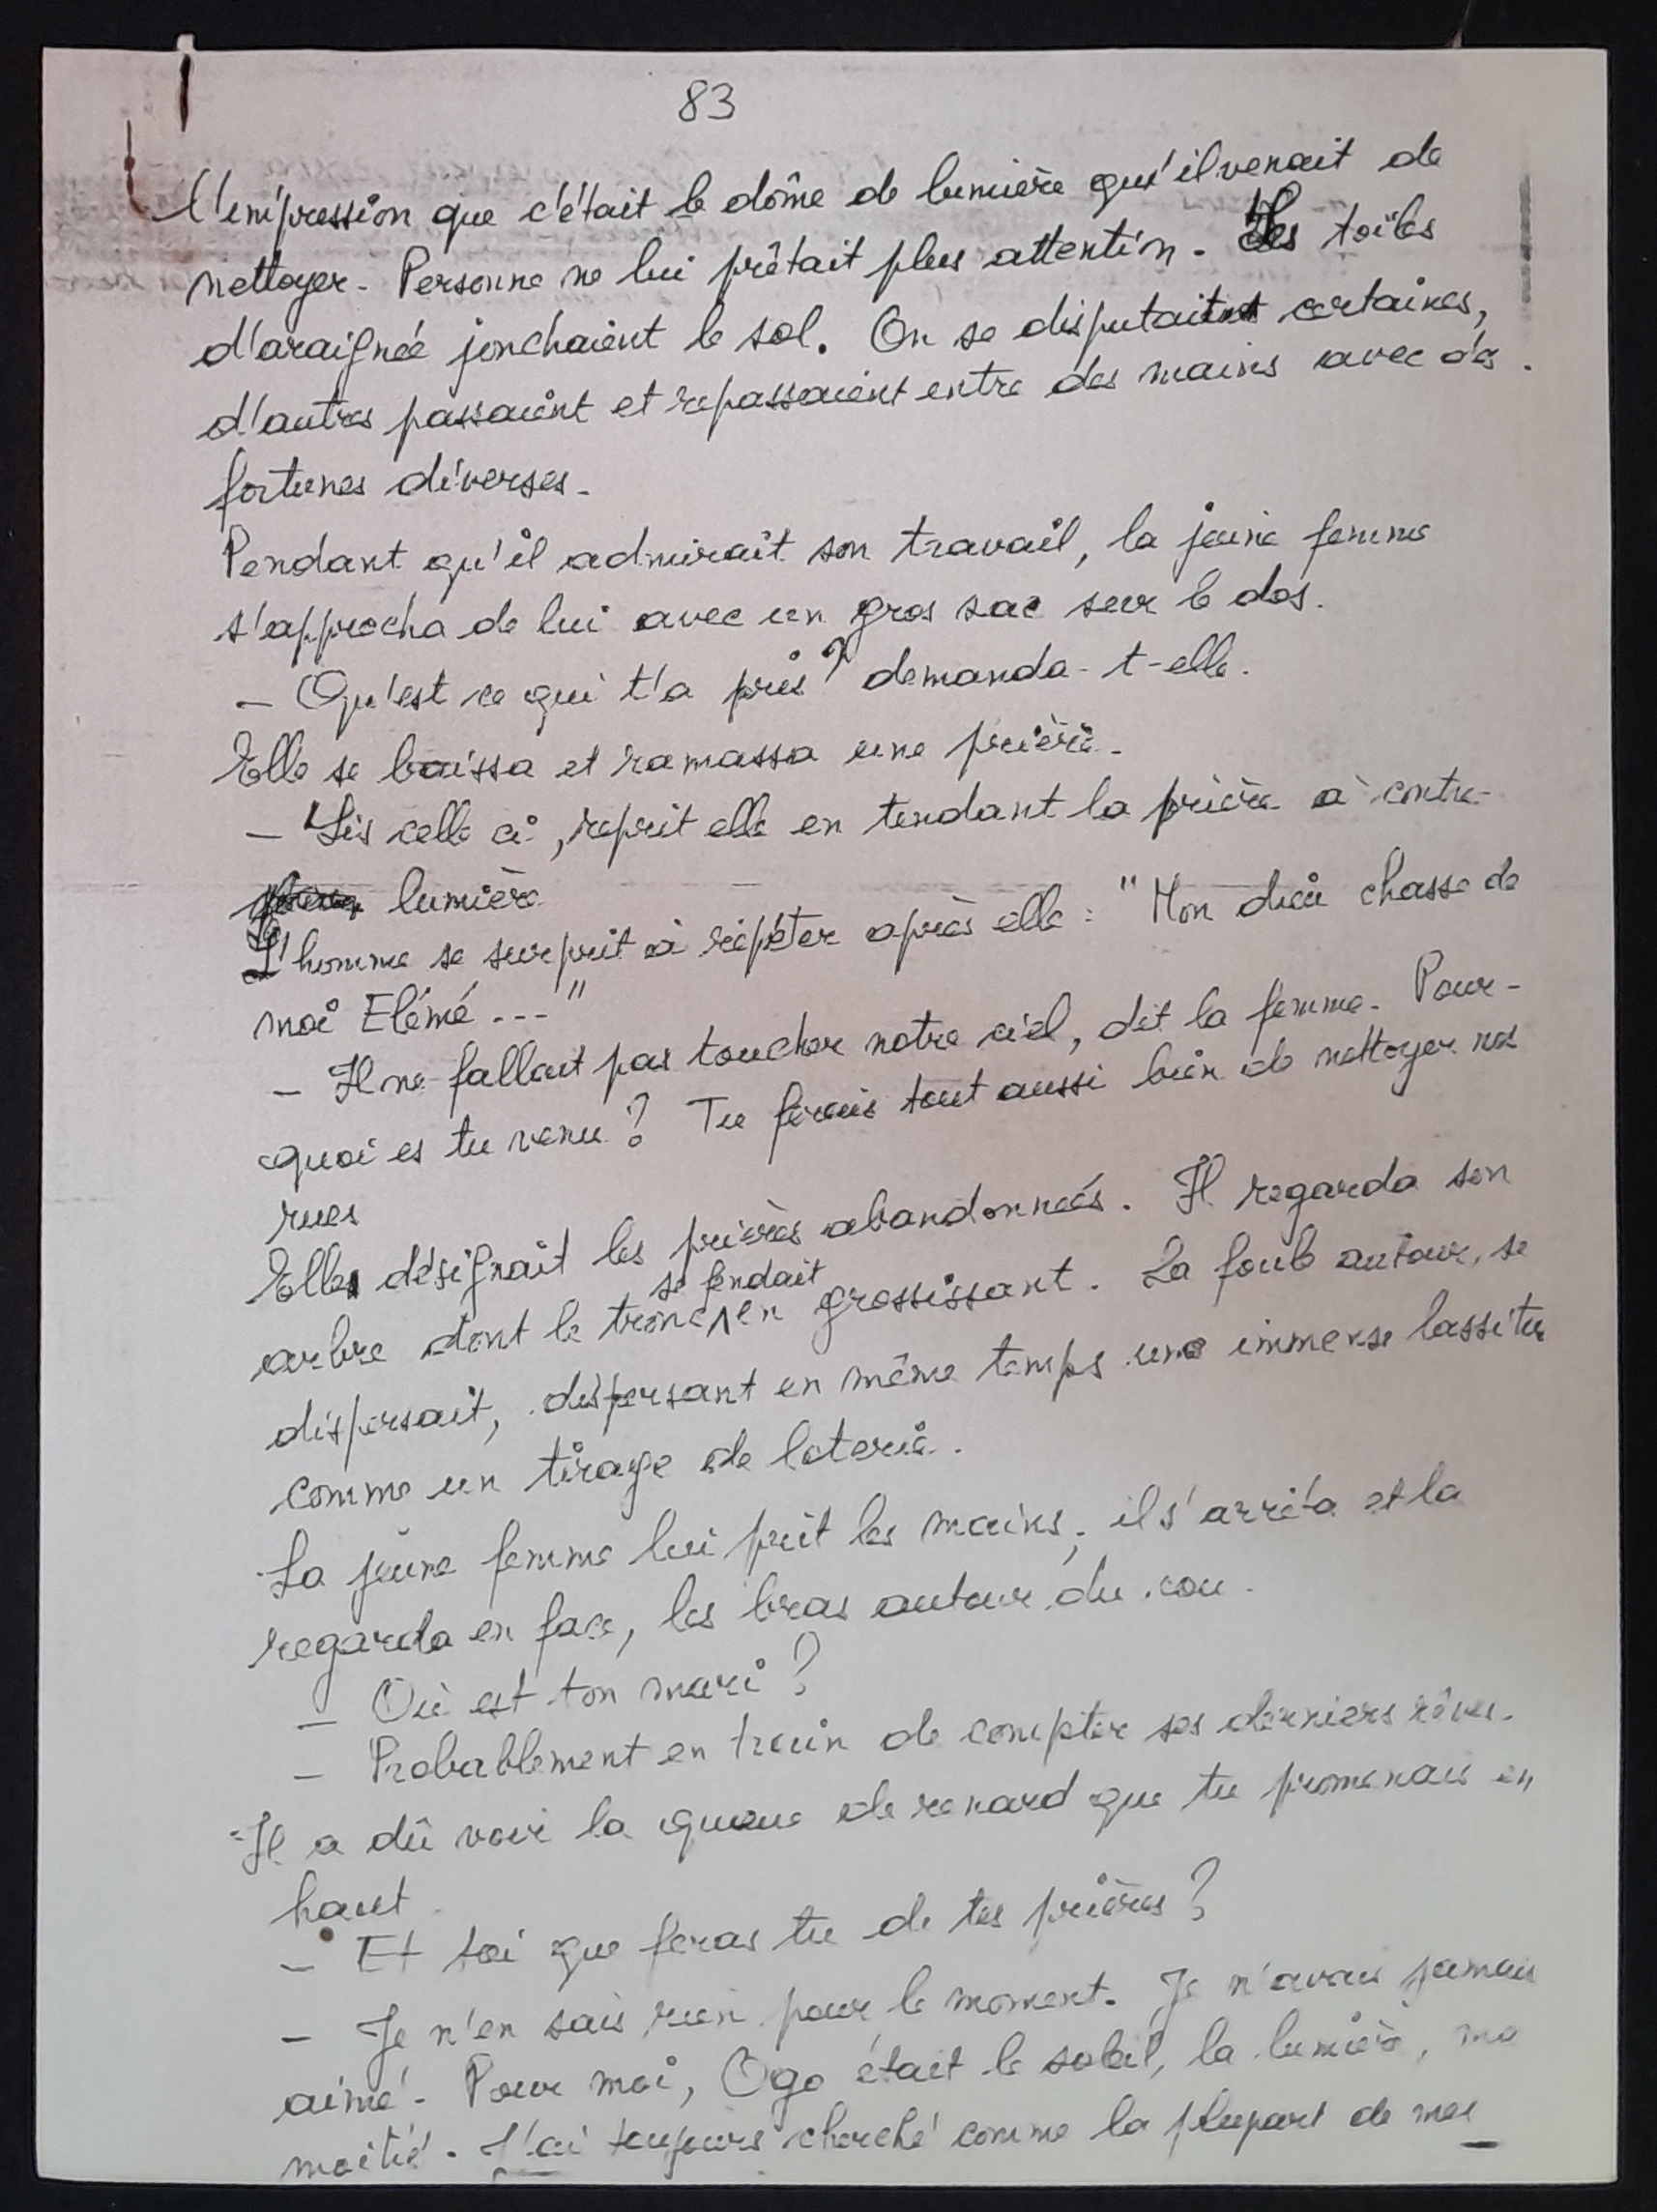 83
l'impression que c'était le dôme de lumière qu'il venait de
nettoyer. Personne ne lui prêtait plus attention. Les toiles
d'araignée jonchaient le sol. On se disputait certaines,
d'autres passaient et repassaient entre des mains avec des
fortunes diverses.
Pendant qu'il admirait son travail, la jeune femme
s'approcha de lui avec un gros sac sur le dos.
- Qu'est ce qui t'a pris? demanda-t-elle.
Elle se baissa et ramassa une prière.
- Lis celle ci, reprit elle en tendant la prière à contre-
lumière
L'homme se surprit à répéter après elle : "Mon dieu chasse de
moi Elémé ---"
- Il ne fallait pas toucher notre ciel, dit la femme. Pour-
quoi es tu venu? Tu ferais tout aussi bien de nettoyer nos
rues
Elle désignait les prières abandonnées. Il regarda son
arbre dont le tronc se fendait en grossissant. La foule autour, se
dispersait, dispersant en même temps une immense lassitu
comme un tirage de loterie.
La jeune femme lui prit les mains; il s'arrêta et la
regarda en face, les bras autour du cou.
- Où est ton mari?
- Probablement en train de compter ses derniers rêves.
Il a dû voir la queue de renard que tu promenais en
haut.
- Et toi que feras tu de tes prières?
- Je n'en sais rien pour le moment. Je n'avais jamais
aimé. Pour moi, Ogo était le soleil, la lumière, ma
moitié. J'ai toujours cherché comme la plupart de mes